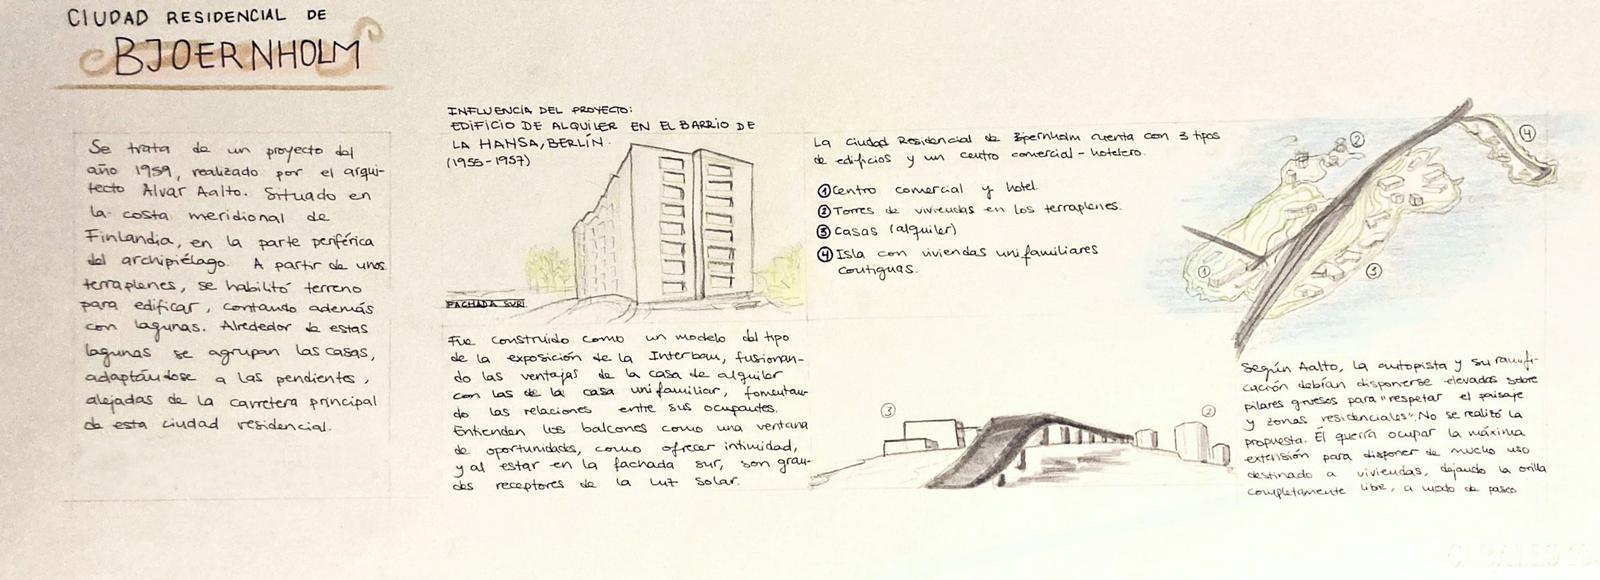 CIUDAD RESIDENCIAL DE
BJOERNHOLM
Se trata de un proyecto del
año 1959, realizado por el arqui-
tecto Alvar Aalto. Situado en
la costa meridional de
Finlandia, en la parte periférica
del archipiélago. A partir de unos
terraplenes, se habilitó terreno
para edificar, contando además
con lagunas. Alrededor de estas
lagunas se agrupan las casas,
adaptándose a las pendientes,
alejadas de la carretera principal
de esta ciudad residencial.
INFLUENCIA DEL PROYECTO:
EDIFICIO DE ALQUILER EN EL BARRIO DE
LA HANSA, BERLÍN.
(1955-1957)
FACHADA SUR
Fue construido como un modelo del tipo
de la exposición de la Interbau, fusionan-
do las ventajas de la casa de alquiler
con las de la casa unifamiliar, fomentan-
do las relaciones entre sus ocupantes.
Entienden los balcones como una ventana
de oportunidades, como ofrecer intimidad,
y al estar en la fachada sur, son gran-
des receptores de la luz solar.
La Ciudad Residencial de Bjoernholm cuenta con 3 tipos
de edificios y un centro comercial-hotelero.
① Centro comercial y hotel.
② Torres de viviendas en los terraplenes.
③ Casas (alquiler)
④ Isla con viviendas unifamiliares
contiguas.
②
④
①
③
③
②
Según Aalto, la autopista y su ramifi-
cación debían disponerse elevadas sobre
pilares gruesos para "respetar el paisaje
y zonas residenciales". No se realizó la
propuesta. Él quería ocupar la máxima
extensión para disponer de mucho uso
destinado a viviendas, dejando la orilla
completamente libre, a modo de paseo